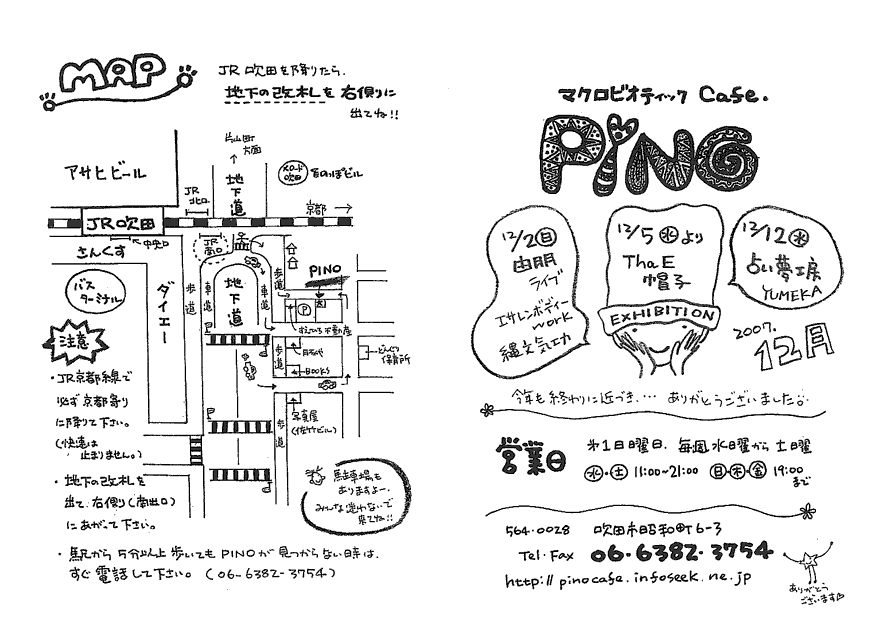 MAP
JR 吹田を降りたら、
地下の改札を右側に
出てね!!
片山町
方面
アサヒビール
JR
北口
地下道
メロード
吹田
京都
JR吹田
中央口
JR
南口
さんくす
バス
ターミナル
ダイエー
歩道
車道
地下道
車道
歩道
PINO
P
不動産
BOOKS
歩道
保育所
写真屋
(佐竹ビル)
歩道
注意
・JR京都線で
必ず京都寄り
に降りて下さい。
(快速は
止まりません。)
・地下の改札を
出て右側(南出口)
にあがって下さい。
駐車場も
ありますよー、
みんな迷わないで
来てね!!
・駅から5分以上歩いてもPINOが見つからない時は、
すぐ電話して下さい。(06-6382-3754)
マクロビオティック Cafe.
PiNO
12/2(日)
由朋
ライブ
エサレンボディー
work
縄文気功
12/5(水)より
ThaE
帽子
EXHIBITION
12/12(水)
占い夢工房
YUMEKA
2007.
12月
今年も終わりに近づき…ありがとうございました。
営業日
第1日曜日、毎週水曜から土曜
(水)・(土) 11:00~21:00 (日)・(木)・(金) 19:00
まで
564-0028 吹田市昭和町6-3
Tel・Fax 06・6382・3754
http://pinocafe.infoseek.ne.jp
ありがとう
ございます